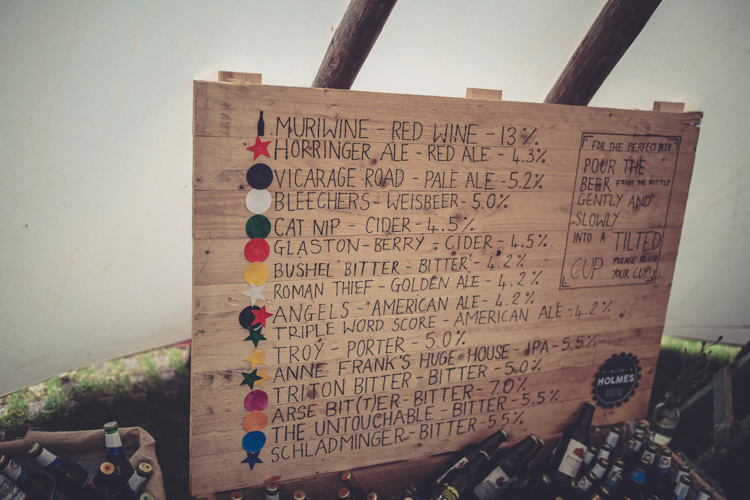 MURIWINE - RED WINE - 13%
HORRINGER ALE - RED ALE - 4.3%
VICARAGE ROAD - PALE ALE - 5.2%
BLEECHERS - WEISBEER - 5.0%
CAT NIP - CIDER - 4.5%
GLASTON-BERRY - CIDER - 4.5%
BUSHEL BITTER - BITTER - 4.2%
ROMAN THIEF - GOLDEN ALE - 4.2%
ANGELS - AMERICAN ALE - 4.2%
TRIPLE WORD SCORE - AMERICAN ALE - 4.2%
TROY - PORTER - 5.0%
ANNE FRANK'S HUGE HOUSE - IPA - 5.5%
TRITON BITTER - BITTER - 5.0%
ARSE BIT(T)ER - BITTER - 7.0%
THE UNTOUCHABLE - BITTER - 5.5%
SCHLADMINGER - BITTER - 5.5%
FOR THE PERFECT BEER
POUR THE
BEER FROM THE BOTTLE
GENTLY AND
SLOWLY
INTO A TILTED
CUP PLEASE RE-USE
YOUR CUP!
HOLMES